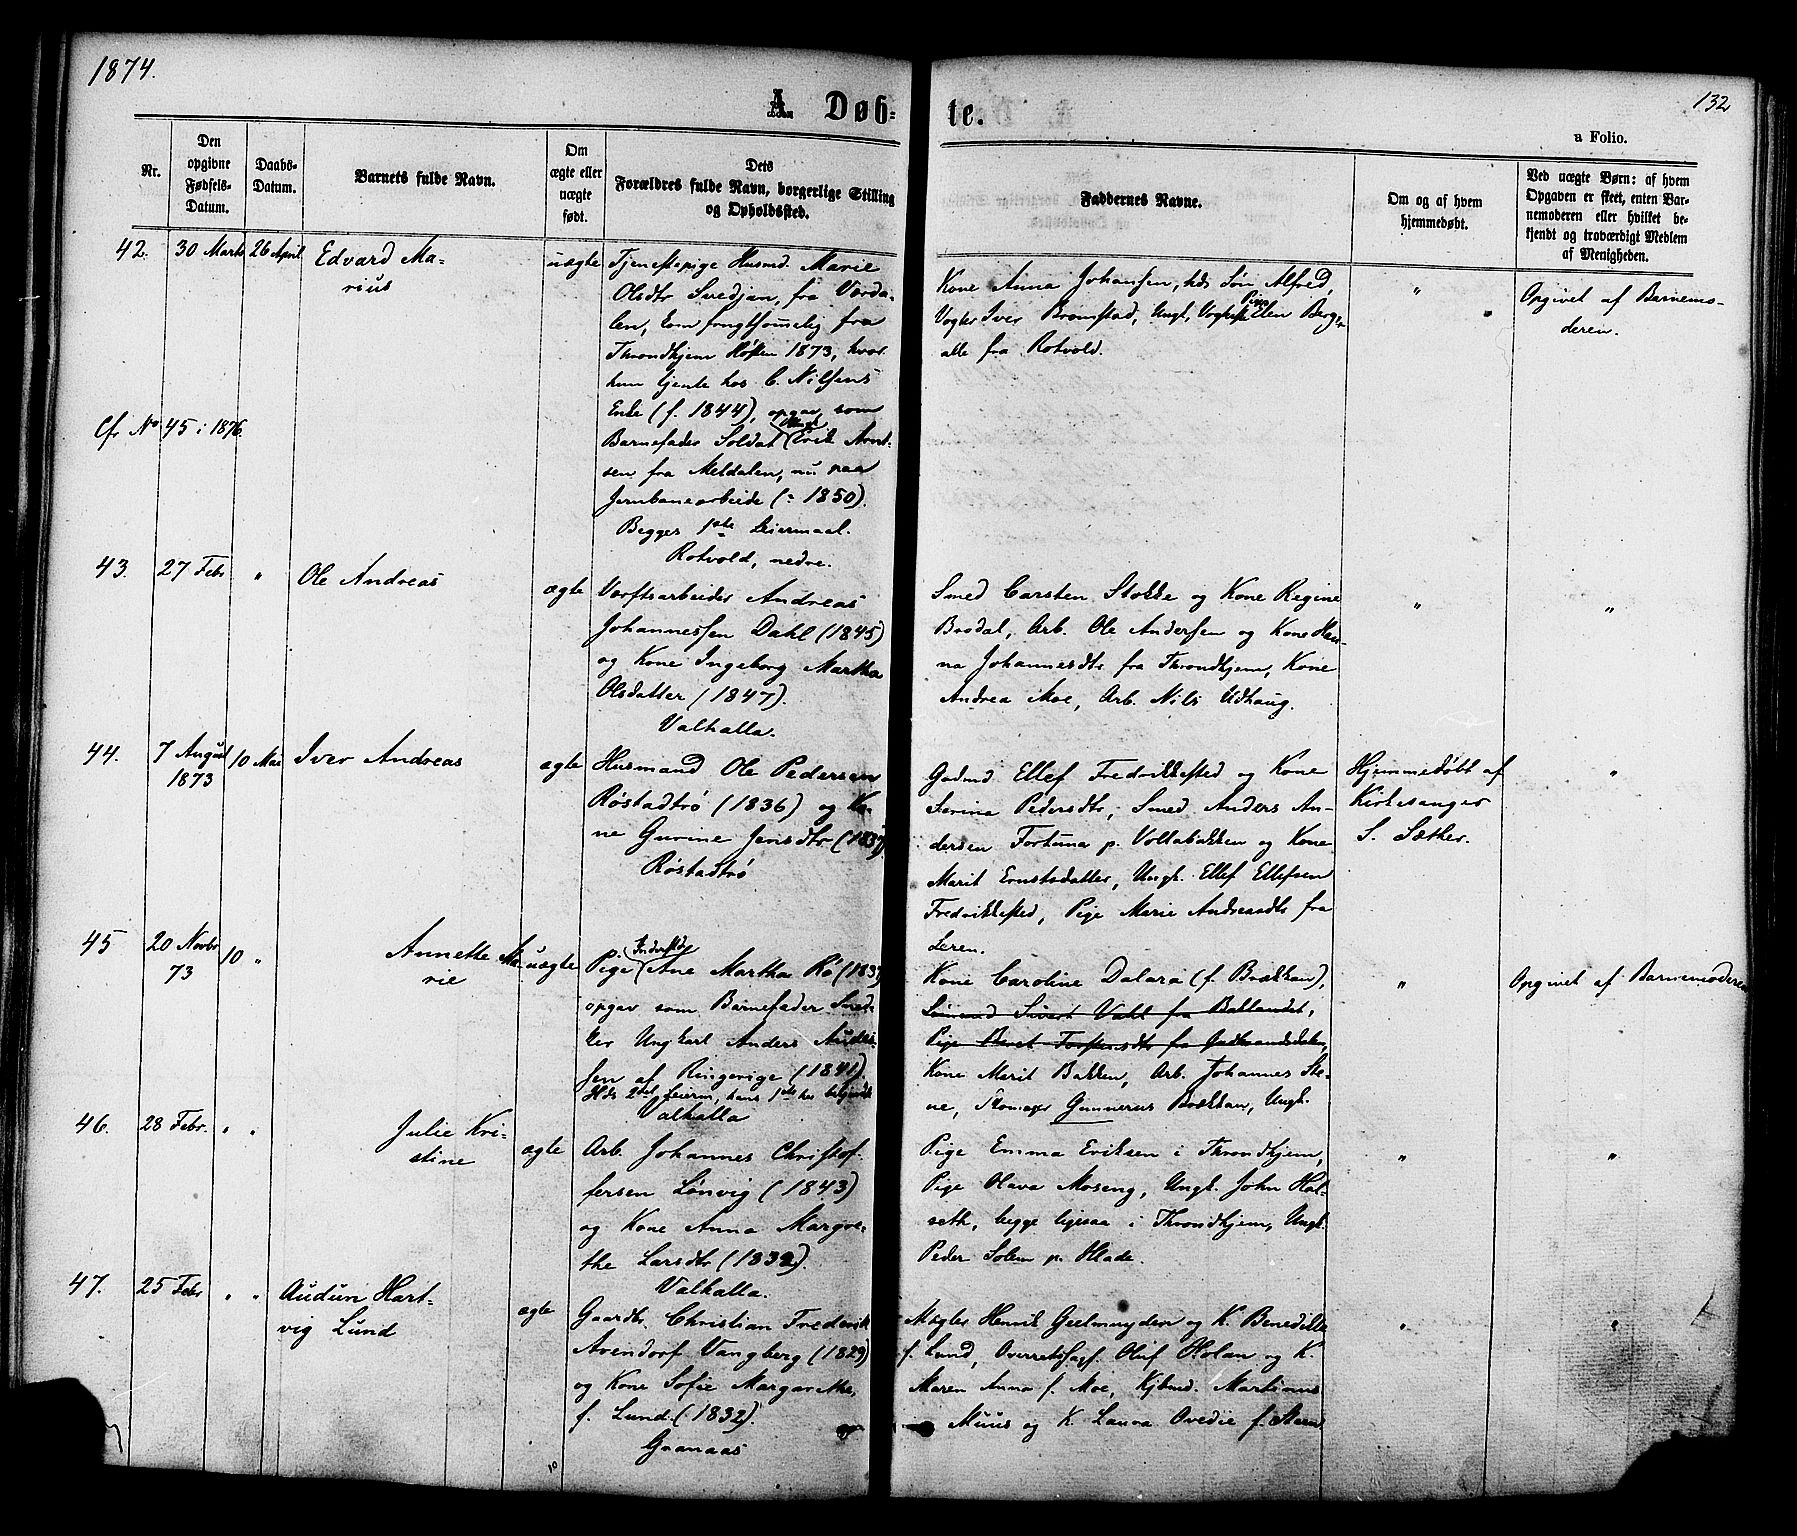 1874.
132
A. Døb-
te.
a Folio.
Nr.
Den opgivne Fødsels-Datum.
Daabs-Datum.
Barnets fulde Navn.
Om ægte eller uægte født.
Dets Forældres fulde Navn, borgerlige Stilling og Opholdssted.
Faddernes Navne.
Om og af hvem hjemmedøbt.
Ved uægte Børn: af hvem Opgaven er skeet, enten Barnemoderen eller hvilket bekjendt og troværdigt Medlem af Menigheden.
42. 30 Marts 26 April Edvard Ma-
rius
uægte
Tjenestepige Husmd. Marie
Olsdtr Svedjan, fra Værda-
len, kom frugtsommelig fra
Throndhjem Høsten 1873, hvor
hun tjente hos C. Nilsens
Enke (f. 1844), opgav som
Barnefader Soldat Ungk. Erik Arnt-
sen fra Meldalen, nu paa
Jernbanearbeide (: 1850).
Begges 1ste Leiermaal.
Rotvold, nedre.
Kone Anna Johansen, hds Søn Alfred,
Vogter Iver Bromstad, Ungk, Pige Ellen Berg,
alle fra Rotvold.
" "
Opgivet af Barnemo-
deren.
Cfr No 45 i 1876.
43. 27 Febr " Ole Andreas
ægte
Værftsarbeider Andreas
Johannessen Dahl (1845)
og Kone Ingeborg Martha
Olsdatter (1847).
Valhalla.
Smed Carsten Stokke og Kone Regine
Brodal, Arb. Ole Andersen og Kone Han-
na Johannesdtr fra Throndhjem, Kone
Andrea Moe, Arb. Nils Udhaug.
" "
44. 7 August
1873
10 Mai Iver Andreas
ægte
Husmand Ole Pedersen
Røstadtrø (1836) og Ko-
ne Gurine Jensdtr (1837)
Røstadtrø
Gadmd Ellef Fredrikkested og Kone
Serina Pedersdtr, Smed Anders An-
dersen Fortuna p. Vollabakken og Kone
Marit Ernstsdatter, Ungk. Ellef Ellefsen
Fredrikkested, Pige Marie Andreasdtr fra
Leren.
Hjemmedøbt af
Kirkesanger
S. Sæther.
"
45 20 Novbr
73
10 " Annette Ma-
rie
uægte
Pige Andersdtr Ane Martha Rø (1837)
opgav som Barnefader Sned-
ker Ungkarl Anders
sen af Ringerige (1841).
Hds 2det Leierm, hans 1ste her bekjendt
Valhalla
Kone Caroline Dalara (f. Brækkan),
Sivert Vahl fra Baklandet,
Pige Beret fra Gudbrandsdalen,
Kone Marit Bakken, Arb. Johannes Ste-
ne, Skomager Gunnerus Brækkan, Ungk.
"
Opgivet af Barnemoderen
46. 28 Febr. " " Julie Kri-
stine
ægte
Arb. Johannes Christof-
fersen Lønvig (1843)
og Kone Anna Margre-
the Larsdtr (1832).
Valhalla.
Pige Emma Eriksen i Throndhjem,
Pige Olava Moseng, Ungk. John Hal-
seth, begge ligesaa i Throndhjem, Ungk.
Peder Solem p. Hlade.
" "
47. 25 Febr " " Audun Hart-
vig Lund
ægte
Gaardbr. Christian Frederik
Avendorf Vangberg (1829)
og Kone Sofie Margarethe,
f. Lund (1832).
Granaas
Mægler Henrik Geelmuyden og K. Benedikte
f. Lund, Overretssagf. Oluf Holan og K.
Maren Anna f. Moe, Kjbmd. Martinus
Muus og K. Laura Ovedie f.
" "
10